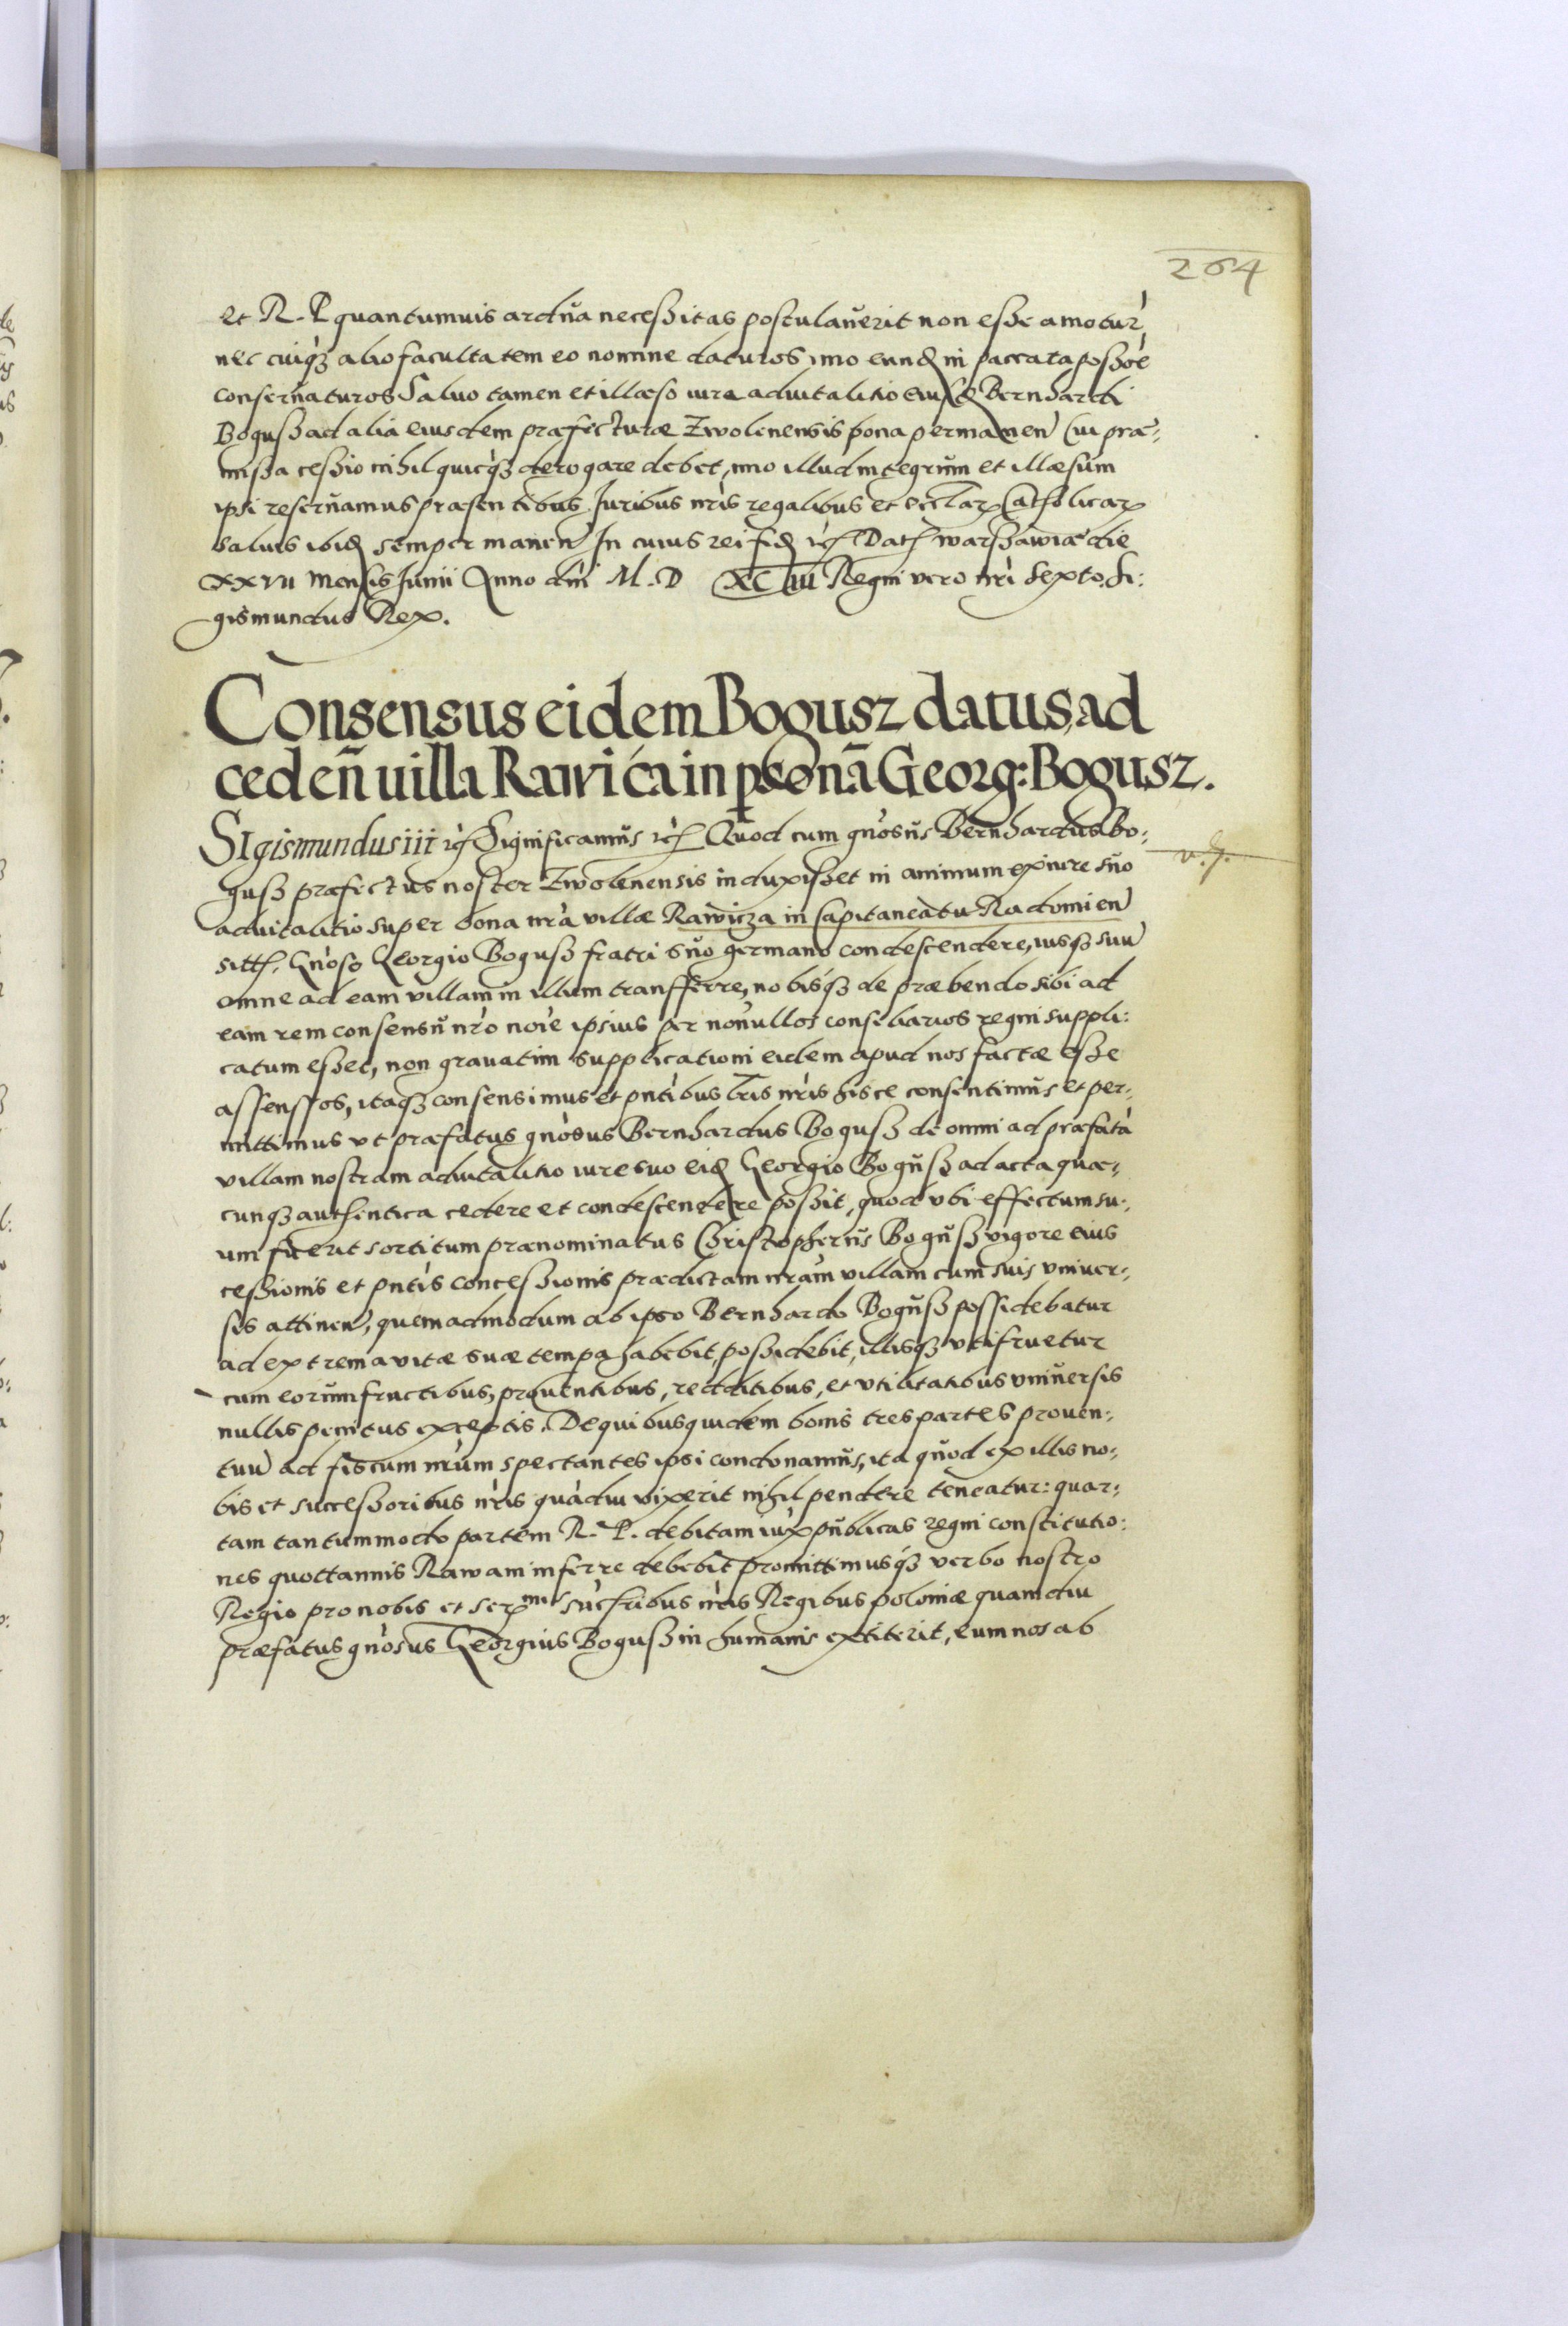 264
et R. P. quantumuis ardua necessitas postulauerit non esse amotur̀,
nec cuiqȝ alio facultatem eo nomine daturos, imo eundꝫ in paccata possōe
conseruaturos Saluo tamen et illæso iure aduitalitio eiusdꝫ Bernhardi
Bogusz ad alia eiusdem præfecturæ Zwolenensis bona permanen̄ Cui præ-
missa cessio nihil quicqȝ derogare debet, imo illud integrum et illæsum
ipsi reseruamus præsentibus. Juribus nr̄is regalibus et Eccl̄arꝫ Catholicarꝫ
saluis ibidꝫ semper manen̄ In cuius rei fidꝫ etc̄ Dat̄ Warszawiæ die
XXVII Mensis Junii Anno dn̄i M. D XCIII Regni vero nr̄i Sexto. Si:
gismundus Rex.
Consensus eidem Bogusz datus, ad
ceden̄ uilla Rawića in p̱sonā Georg: Bogusz.
SIgismundus iii etc̄ Significamus etc̄ Quod cum gn̄osus Bernhardus Bo-
gusz præfectus noster Zwolenensis induxisset in animum ex iure suo
aduitalitio super bona nr̄a villæ Rawicza in Capitaneatu Radomien̄
sitt̄, Gn̄oso Georgio Bogusz fratri suo germano condescendere, iusqȝ suū
omne ad eam villam in illum transfferre, nobisqȝ de præbendo sibi ad
eam rem consensu nr̄o noīe ipsius per nonnullos consiliarios regni suppli:
catum esset, non grauatim supplicationi eidem apud nos factæ esse
assenssos, itaqȝ consensimus et pn̄tibus lr̄is nr̄is hisce consentimus et per-
mittimus vt præfatus gn̄osus Bernhardus Bogusz de omni ad præfatā
villam nostram aduitalitio iure suo eidꝫ Georgio Bogusz ad acta quæ-
cunqȝ authentica cedere et condescendere possit, quod vbi effectum su-
um fuerit sortitum prænominatus Christopherus Bogusz vigore eius
cessionis et pn̄tis concessionis prædictam nr̄am villam cum suis vniuer-
sis attinen̄, quemadmodum ab ipso Bernhardo Bogusz possidebatur
ad extrema vitæ suæ tempa habebit, possidebit, illisqȝ vtifruetur
cum eorum fructibus, prouentibus, redditibus, et vtilitatibus vniuersis
nullis penitus exceptis. De quibus quidem bonis tres partes prouen-
tuū ad fiscum nr̄um spectantes ipsi condonamus, ita quod ex illis no-
bis et successoribus nr̄is quādiu vixerit nihil pendere teneatur: quar-
tam tantummodo partem R. P. debitam iux̄ publicas regni constitutio:
nes quottannis Rawam inferre debebit promittimusqȝ verbo nostro
Regio pro nobis et serꝫmis suc̄ribus nr̄is Regibus poloniæ quamdiu
præfatus gn̄osus Georgius Bogusz in humanis extiterit, eum nos ab